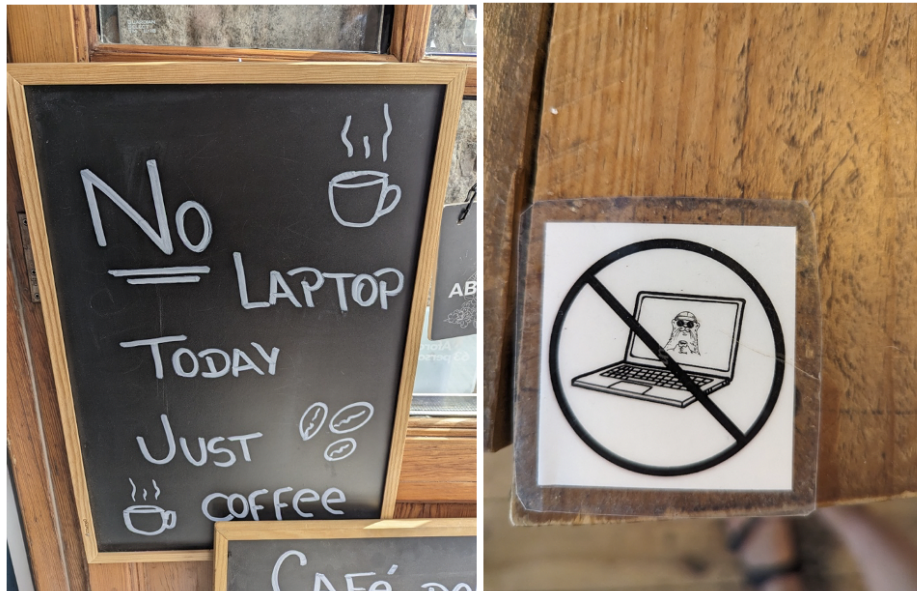 No
LAPTOP
TODAY
JUST
COFFEE
CAFÉ DO
AB